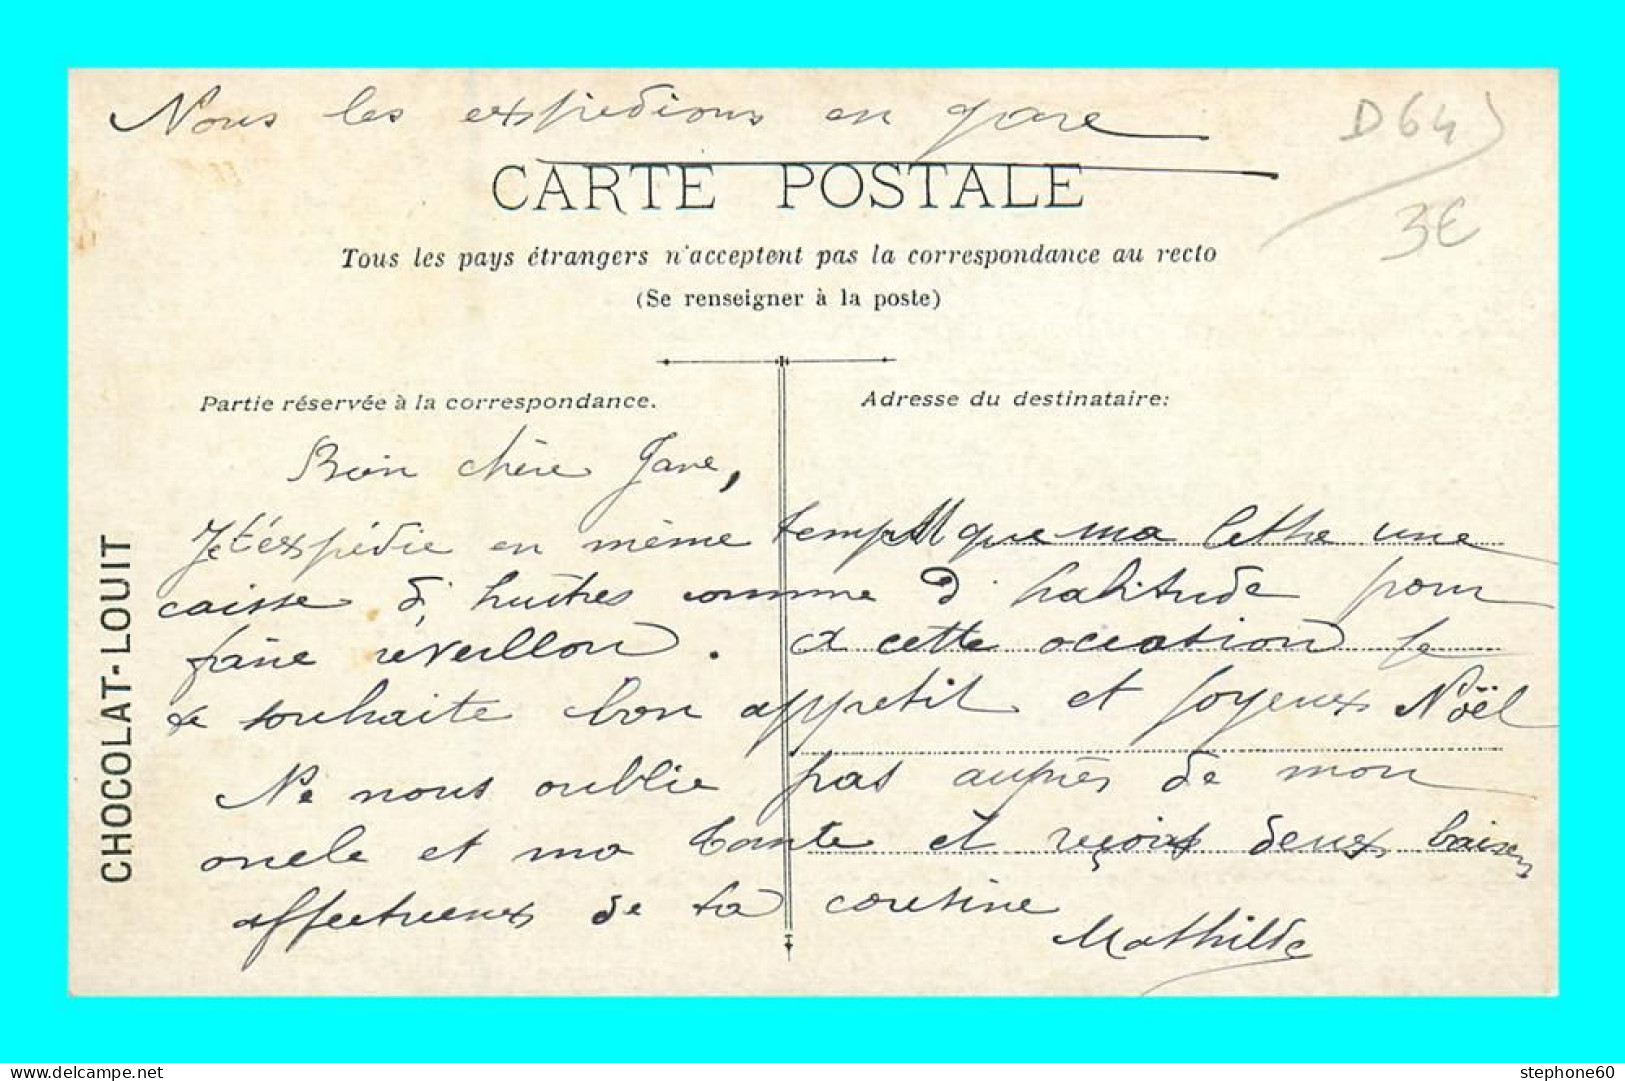 Nous les expédions en gare
D64
3€
CARTE POSTALE
Tous les pays étrangers n'acceptent pas la correspondance au recto
(Se renseigner à la poste)
Partie réservée à la correspondance.
Adresse du destinataire:
CHOCOLAT-LOUIT
Bien chère Jane,
Je t'éxpédie en même temps que ma lettre une
caisse d'huîtres comme d'habitude pour
faire réveillon. à cette occasion je
te souhaite bon appetit et joyeux Noël
Ne nous oublie pas auprès de mon
oncle et ma tante et reçois deux baisers
affectueux de ta cousine
Mathilde
delcampe.net
stephone60